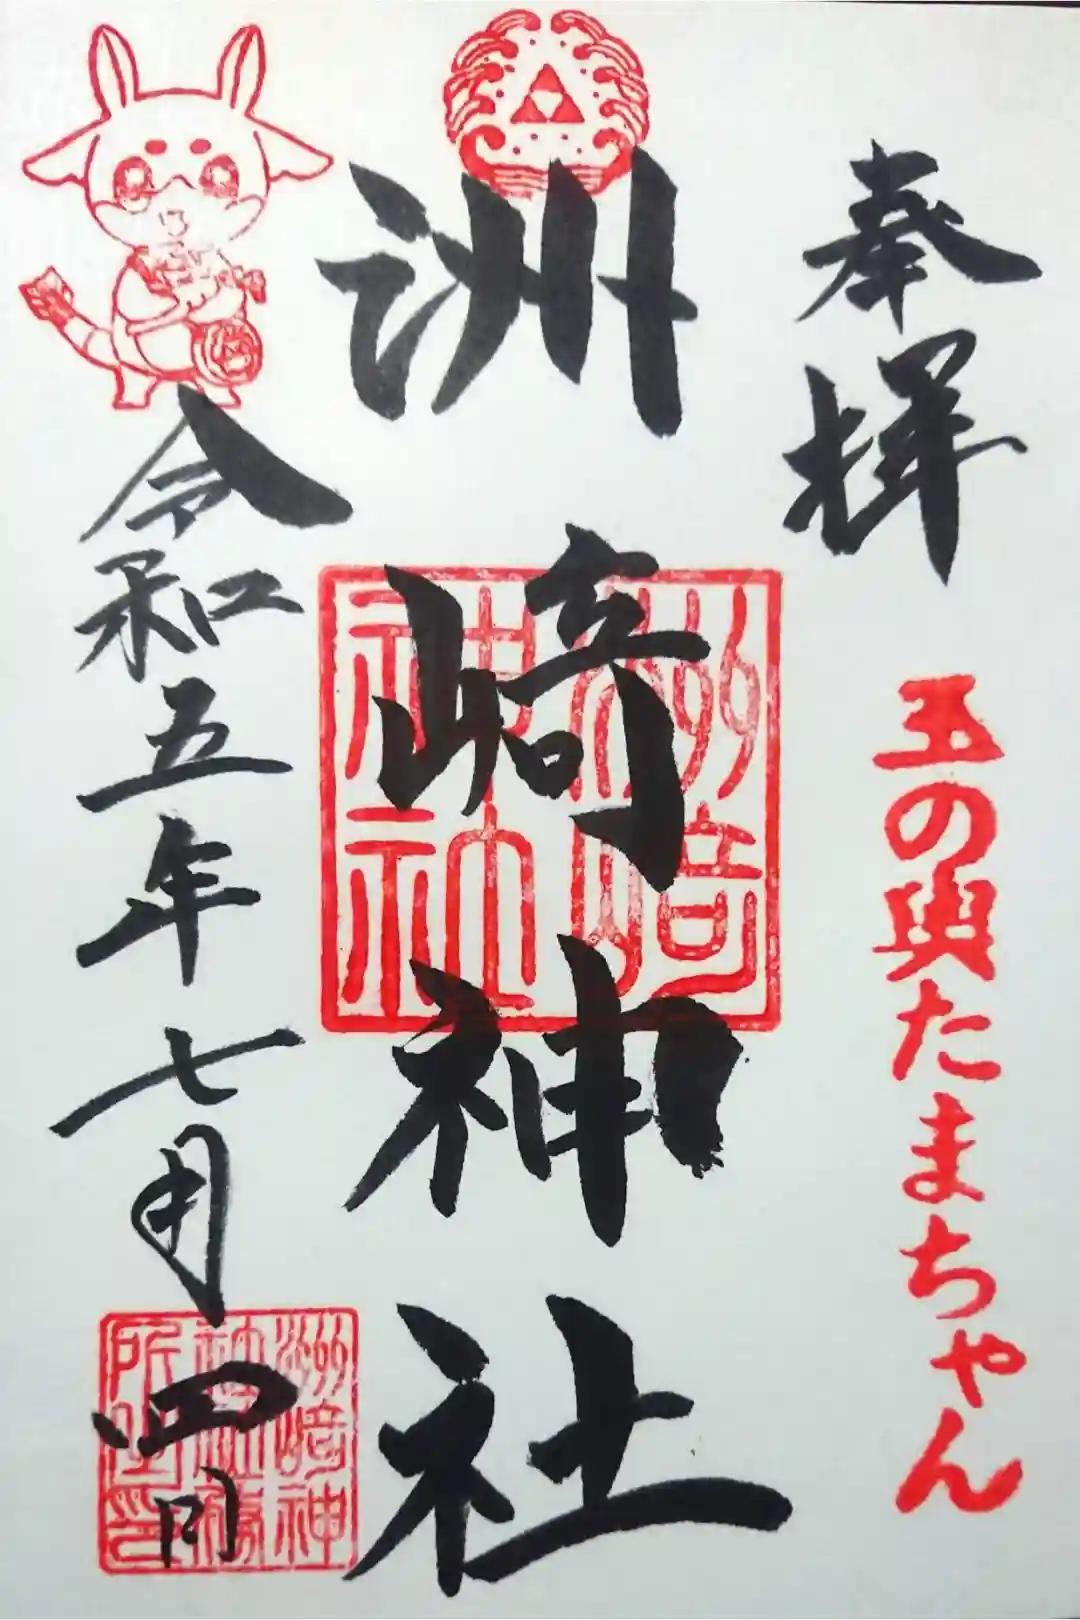 奉拝
玉の輿たまちゃん
洲崎神社
洲崎
神社
令和五年七月四日
洲崎神
社社務
所之印